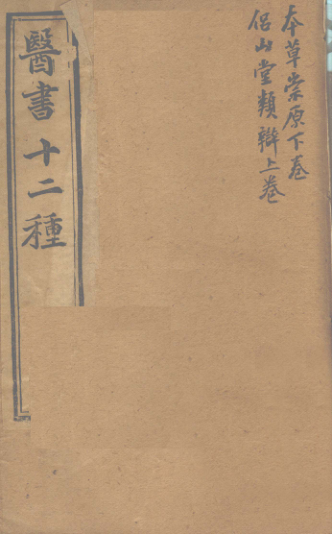 本草崇原下卷
侶山堂類辯上卷
醫書十二種